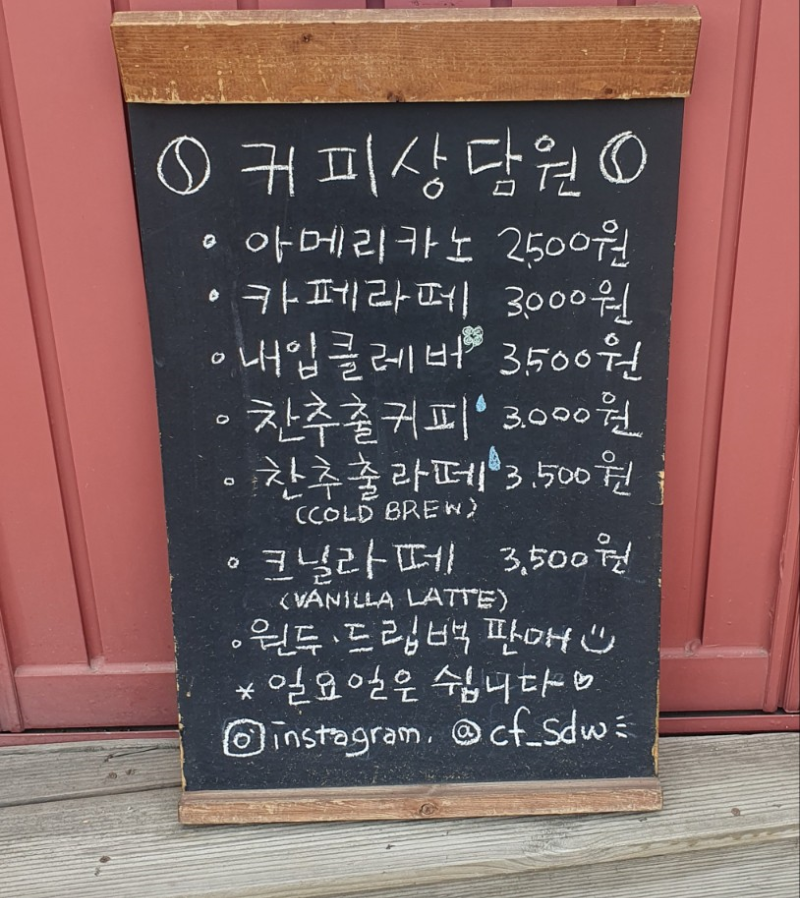 커피상담원
아메리카노 2,500원
카페라떼 3,000원
내입클레버 3,500원
찬추출커피 3,000원
찬추출라떼 3,500원
(COLD BREW)
크닐라떼 3,500원
(VANILLA LATTE)
원두·드립백 판매
* 일요일은 쉽니다♡
instagram. @cf_sdw